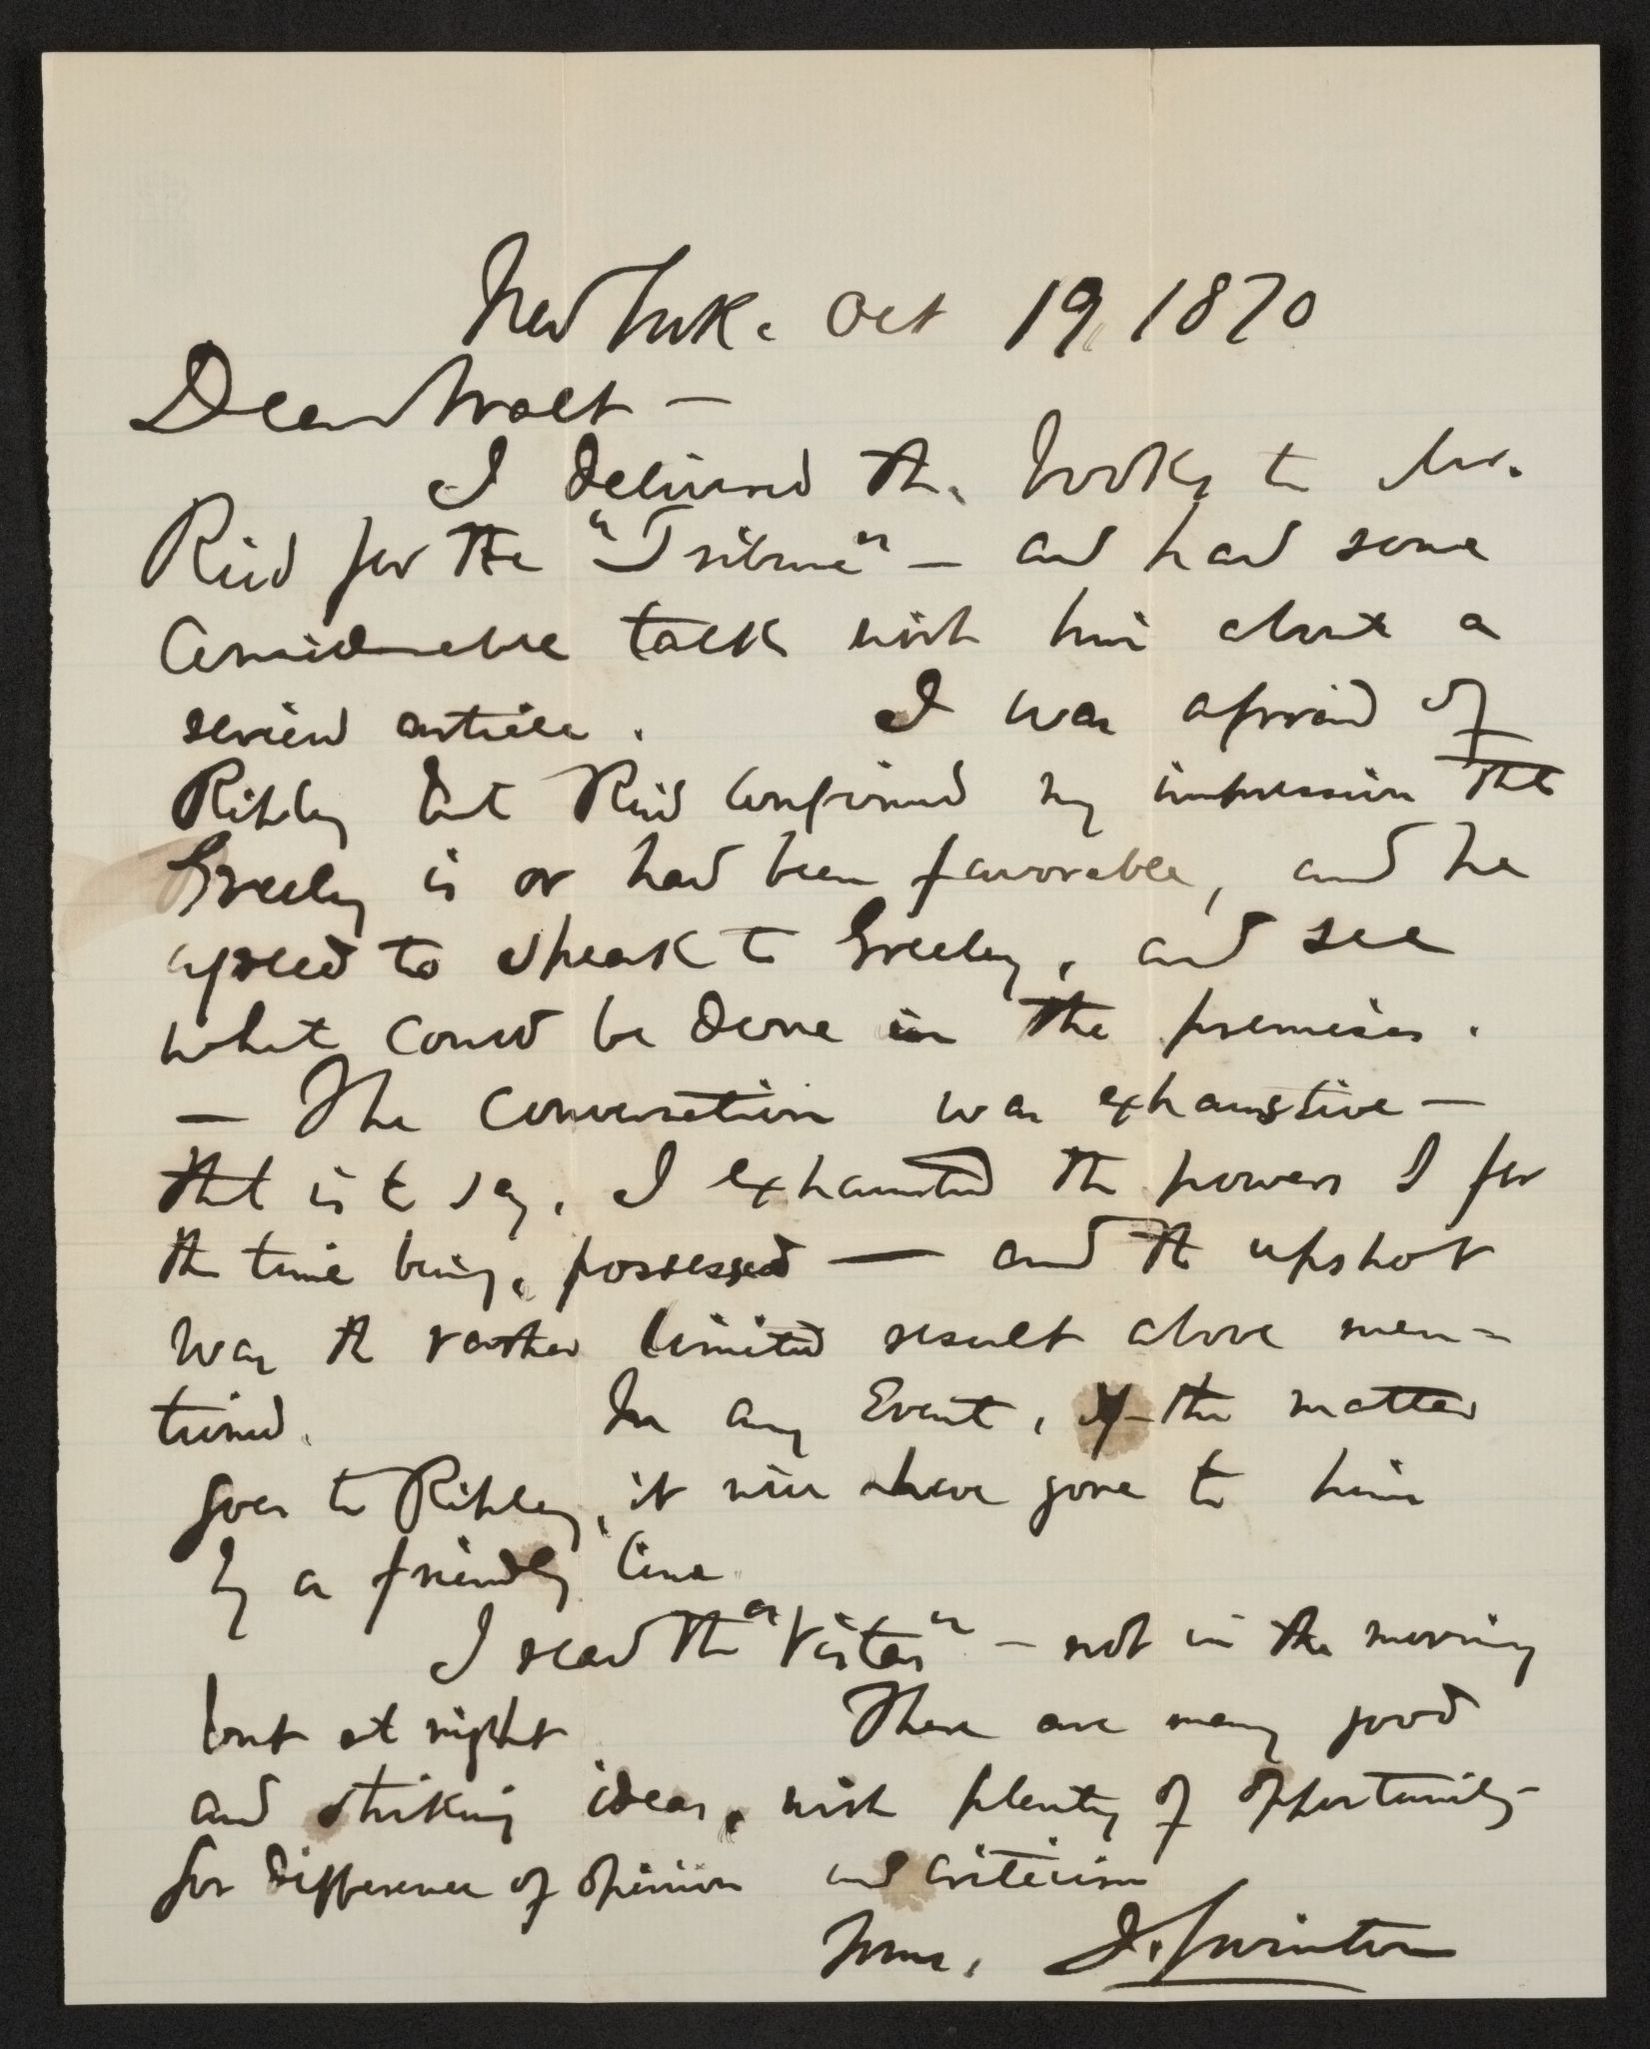 New York. Oct 19, 1870
Dear Walt —
I delivered the books to Mr.
Reid for the "Tribune" — and had some
considerable talk with him about a
review article. I was afraid of
Ripley but Reid confirmed my impression that
Greeley is or had been favorable, and he
agreed to speak to Greeley, and see
what could be done in the premises.
— The conversation was exhaustive —
that is to say, I exhausted the powers I for
the time being, possessed — and the upshot
was the rather limited result above men-
tioned. In any event, if the matter
goes to Ripley, it will have gone to him
by a friendly line
I read the "Vistas" — not in the morning
but at night There are many good
and striking ideas, with plenty of opportunity
for difference of opinion and criticism
Yours, J. Swinton